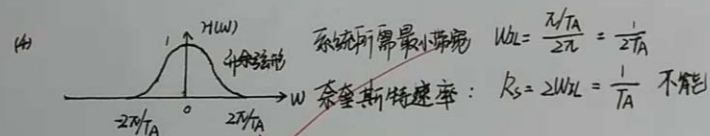 (4)
1 H(ω) 升余弦形
-2π/TA 0 2π/TA ω
系统所需最小带宽 WN = (π/TA)/(2π) = 1/(2TA)
奈奎斯特速率: RS = 2WN = 1/TA 不能